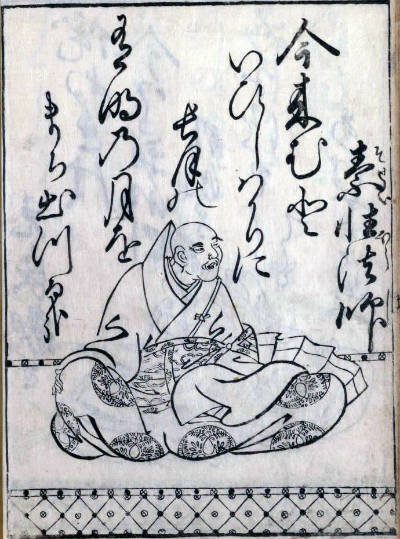 素性法師
今来むと
いひしはかりに
長月の
有明乃月を
まち出つる